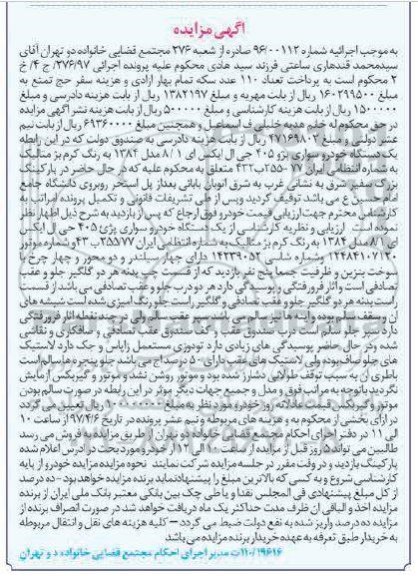 آگهی مزایده
به موجب اجرائیه شماره ۹۶/۰۰۱۱۲ صادره از شعبه ۲۷۶ مجتمع قضایی خانواده دو تهران آقای
سیدمحمد قندهاری ساعتی فرزند سید هادی محکوم علیه پرونده اجرائی ۲۷۶/۹۷/ج ۴/خ
۲ محکوم است به پرداخت تعداد ۱۱۰ عدد سکه تمام بهار آزادی و هزینه سفر حج تمتع به
مبلغ ۱۶۰۲۹۹۵۰۰ ریال از بابت مهریه و مبلغ ۱۳۸۲۱۹۷ ریال از بابت هزینه دادرسی و مبلغ
۱۵۰۰۰۰۰ ریال از بابت هزینه کارشناسی و مبلغ ۵۰۰۰۰۰ ریال از بابت هزینه نشر آگهی مزایده
در حق محکوم له خانم هدیه خلیلی ف اسماعیل و همچنین مبلغ ۶۹۳۶۰۰۰۰ ریال از بابت نیم
عشر دولتی و مبلغ ۴۷۱۶۹۸۰۲ ریال از بابت هزینه دادرسی به صندوق دولت که در این رابطه
یک دستگاه خودرو سواری پژو ۴۰۵ جی ال ایکس ای ۱/۸ مدل ۱۳۸۴ به رنگ کرم بژ متالیک
به شماره انتظامی ایران ۷۷-۲۵۵ب۴۳ متعلق به محکوم علیه که در حال حاضر در پارکینگ
بزرگ سفیر شرق به نشانی غرب به شرق اتوبان بابائی بعداز پل استخر روبروی دانشگاه جامع
امام حسین ع می باشد توقیف گردید وپس از طی تشریفات قانونی و تکمیل پرونده مراتب به
کارشناس محترم جهت ارزیابی قیمت خودرو فوق ارجاع که پس از بازدید به شرح ذیل اظهار نظر
نموده است. ارزیابی و نظریه کارشناسی از یک دستگاه خودرو سواری پژوی ۴۰۵ جی ال ایکس
ای ۱/۸ مدل ۱۳۸۴ به رنگ کرم بژ متالیک به شماره انتظامی ایران ۷۷-۲۵۵ب۴۳ و شماره موتور
۱۲۴۸۴۱۰۷۱۲۰ وشماره شاسی ۱۴۲۳۹۰۵۲ دارای چهار سیلندر و دو محور و چهار چرخ با
سوخت بنزین و ظرفیت جمعا پنج نفر بازدید که از قسمت چپ بدنه هر دو گلگیر جلو و عقب
تصادفی است و آثار فرورفتگی و پوسیدگی دارد هر دو درب جلو و عقب تصادفی می باشد از قسمت
راست بدنه هر دو گلگیر جلو و عقب تصادفی و گلگیر راست جلو رنگ آمیزی شده است شیشه های
آن و سقف سالم بوده و آینه ها نیز سالم می باشد سپر عقب سالم ولی در چند نقطه آثار فرورفتگی
دارد سپر جلو سالم است درب صندوق عقب و کف صندوق عقب تصادفی و صافکاری و نقاشی
شده ودر حال حاضر پوسیدگی های زیادی دارد تودوزی مستعمل زاپاس و جک دارد لاستیک
های جلو صاف بوده ولی لاستیک های عقب دارای ۵۰ درصد آج می باشد جلو پنجره ها سالم است
باطری آن به سبب توقف طولانی دشارژ شده بود و موتور روشن نشد و موتور و گیربکس آزمایش
نگردید باتوجه به مراتب فوق و مدل و جمیع جهات دیگر موثر در این رابطه در صورت سالم بودن
موتور و گیربکس قیمت عادلانه روز خودرو مورد نظر به مبلغ ریال تعیین می گردد
در ازای بخشی از محکوم به و هزینه های مربوطه و نیم عشر پرونده در تاریخ ۹۷/۴/۶ از ساعت ۱۰
الی ۱۱ در دفتر اجرای احکام مجتمع قضایی خانواده دو تهران از طریق مزایده به فروش می رسد
طالبین می توانند ۵ روز قبل از مزایده از ساعت ۱۰ الی ۱۲ از خودرو مورد بحث در آدرس اعلام شده
پارکینگ بازدید و در وقت مقرر در جلسه مزایده شرکت نمایند. نحوه مزایده مزایده خودرو از پایه
کارشناسی شروع و به کسی که بالاترین مبلغ را پیشنهاد نماید برنده مزایده خواهد بود – ده درصد
از کل مبلغ پیشنهادی فی المجلس نقدا و یا طی چک بین بانکی معتبر بانک ملی ایران از برنده
مزایده اخذ و الباقی آن ظرف مدت حداکثر یک ماه دریافت خواهد شد در صورت انصراف برنده از
مزایده ده درصد واریز شده به نفع دولت ضبط می گردد – کلیه هزینه های نقل و انتقال مربوطه
به خریدار طبق تعرفه به عهده خریدار برنده مزایده می باشد
۱۱۰/۱۹۶۱۶ت مدیر اجرای احکام مجتمع قضایی خانواده دو تهران